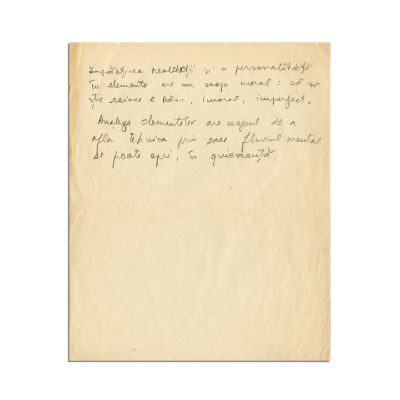 Împărțirea realității și a personalității
în elemente are un scop moral: să se
știe ceiace e rău, imoral, imperfect.
Analiza elementelor are scopul de a
afla tehnica prin care fluviul mental
se poate opri, în quiescență.